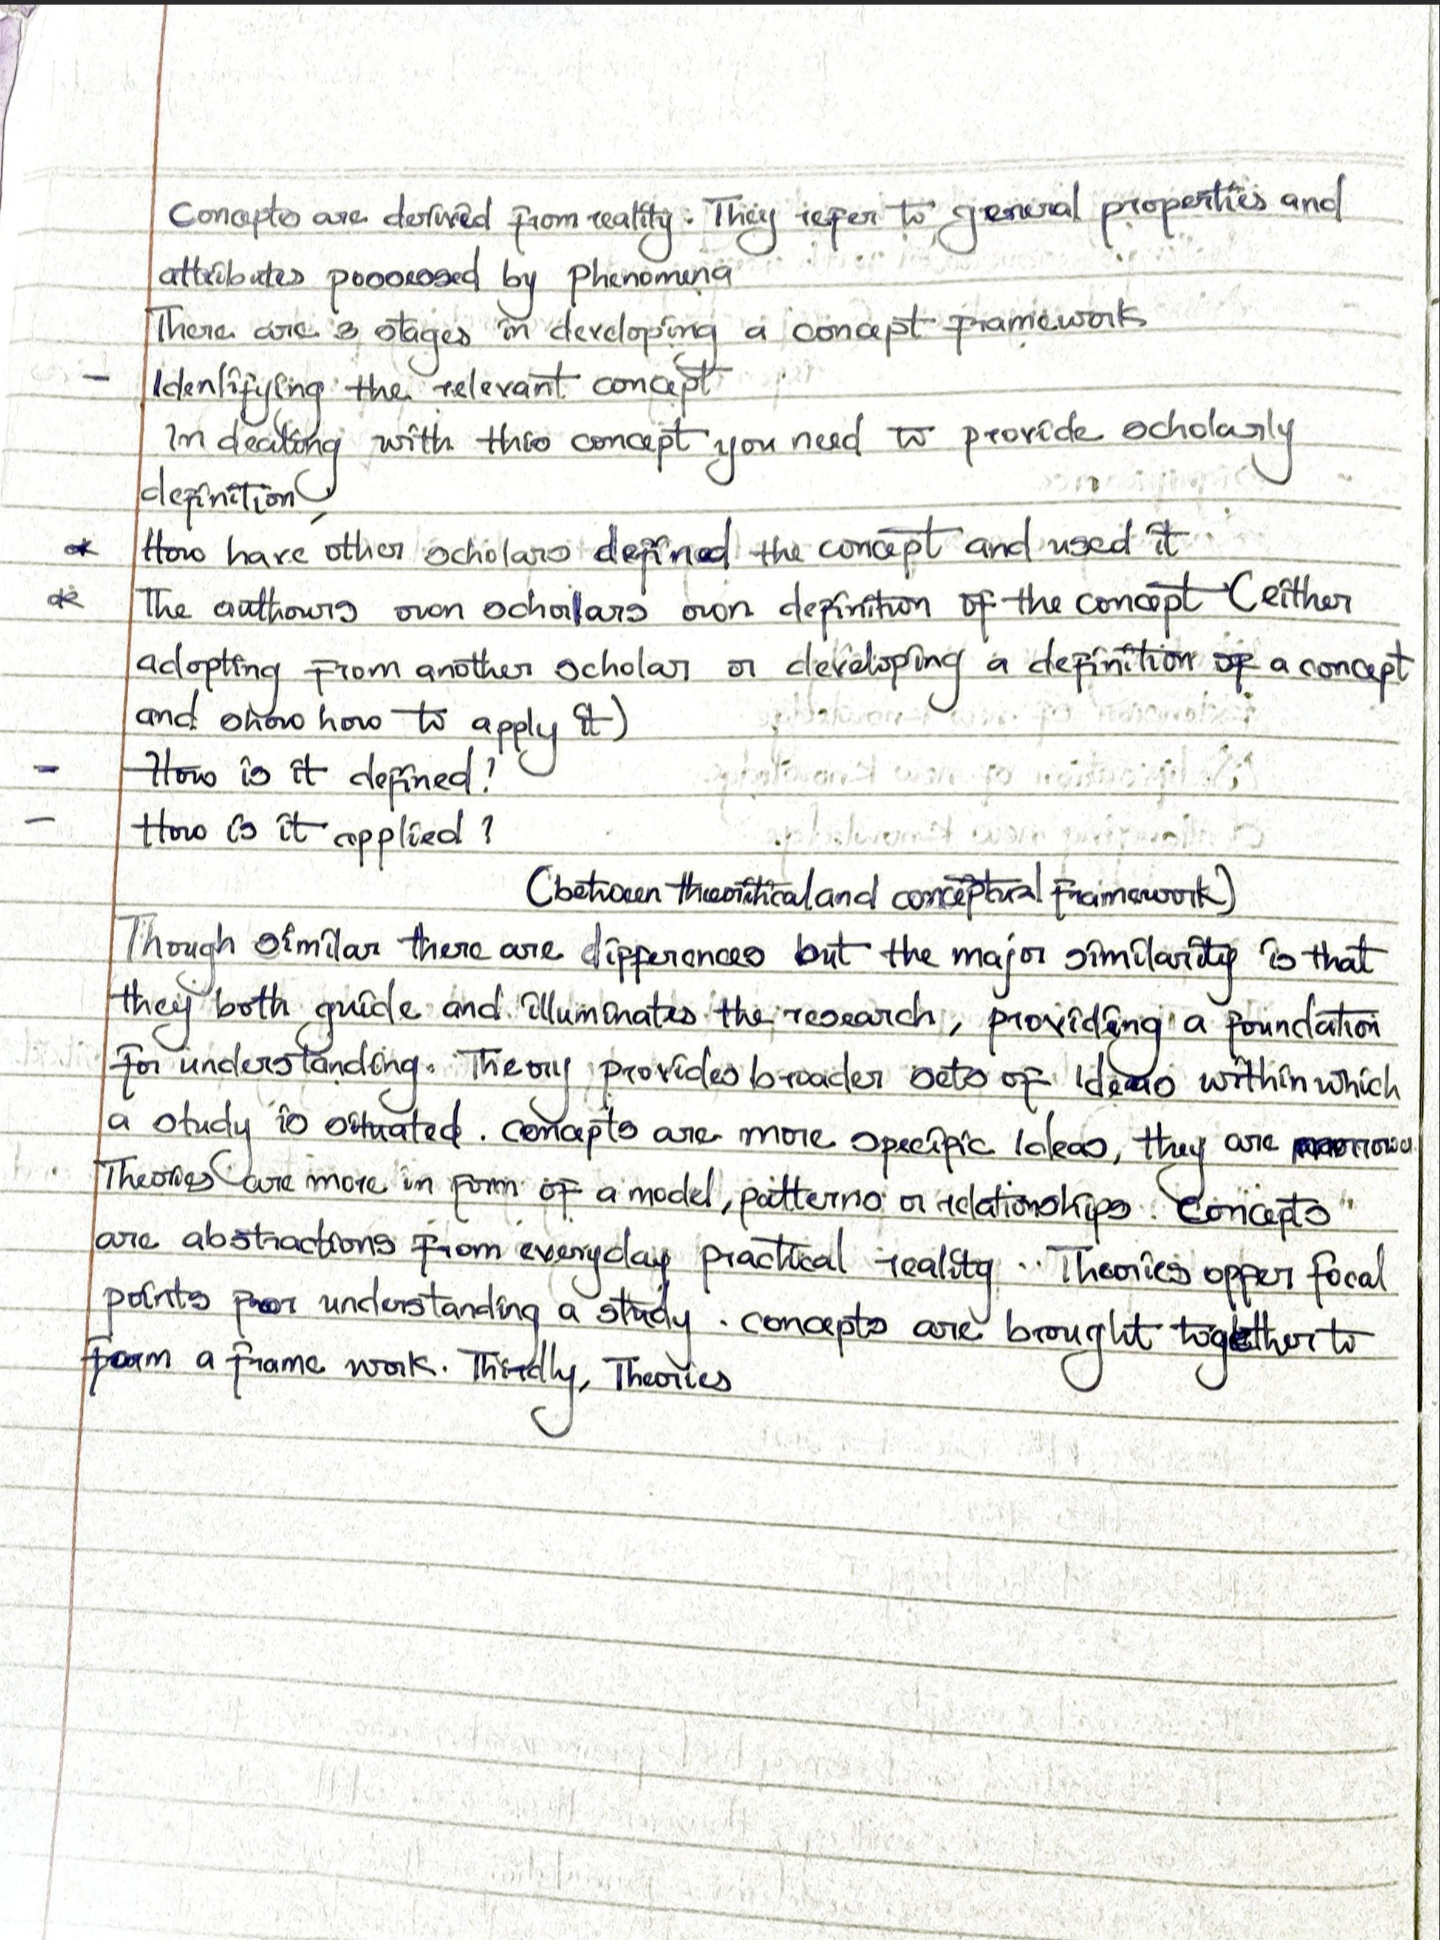 Concepts are derived from reality. They refer to general properties and
attributes possessed by phenomena
There are 3 stages in developing a concept framework
- Identifying the relevant concept
In dealing with this concept you need to provide scholarly
definition
* How have other scholars defined the concept and used it
* The authours own scholars own definition of the concept (either
adopting from another scholar or developing a definition of a concept
and show how to apply it)
- How is it defined?
- How is it applied?
(between theoritical and conceptual framework)
Though similar there are differences but the major similarity is that
they both guide and illuminates the research, providing a foundation
for understanding. Theory provides broader sets of Ideas within which
a study is situated. concepts are more specific Ideas, they are narrow
Theories are more in form of a model, patterns or relationships. Concepts
are abstractions from everyday practical reality. Theories offer focal
points for understanding a study. concepts are brought together to
form a frame work. Thirdly, Theories